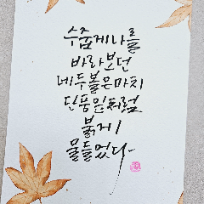 수줍게 나를
바라보던
네 두볼은 마치
단풍잎처럼
붉게
물들었다